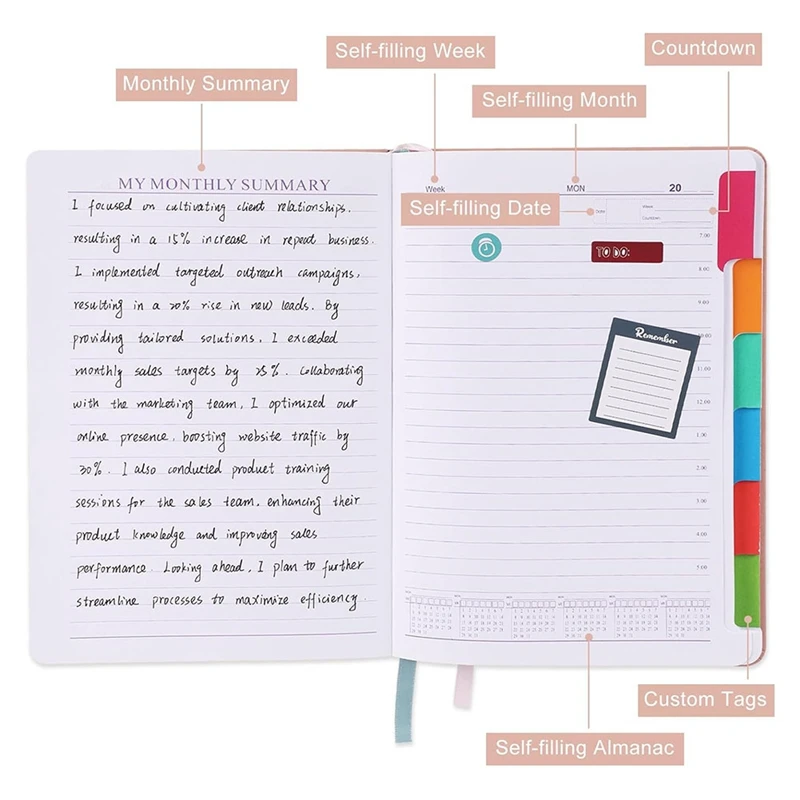 Self-filling Week
Countdown
Monthly Summary
Self-filling Month
MY MONTHLY SUMMARY
I focused on cultivating client relationships,
resulting in a 15% increase in repeat business.
I implemented targeted outreach campaigns,
resulting in a 20% rise in new leads. By
providing tailored solutions, I exceeded
monthly sales targets by 25%. Collaborating
with the marketing team, I optimized our
online presence, boosting website traffic by
30%. I also conducted product training
sessions for the sales team, enhancing their
product knowledge and improving sales
performance. Looking ahead, I plan to further
streamline processes to maximize efficiency.
Week
MON
20
Self-filling Date
Date
Week
Countdown
7.00
TO DO:
8.00
9.00
10.00
Remember
11.00
12.00
1.00
2.00
3.00
4.00
5.00
Custom Tags
Self-filling Almanac